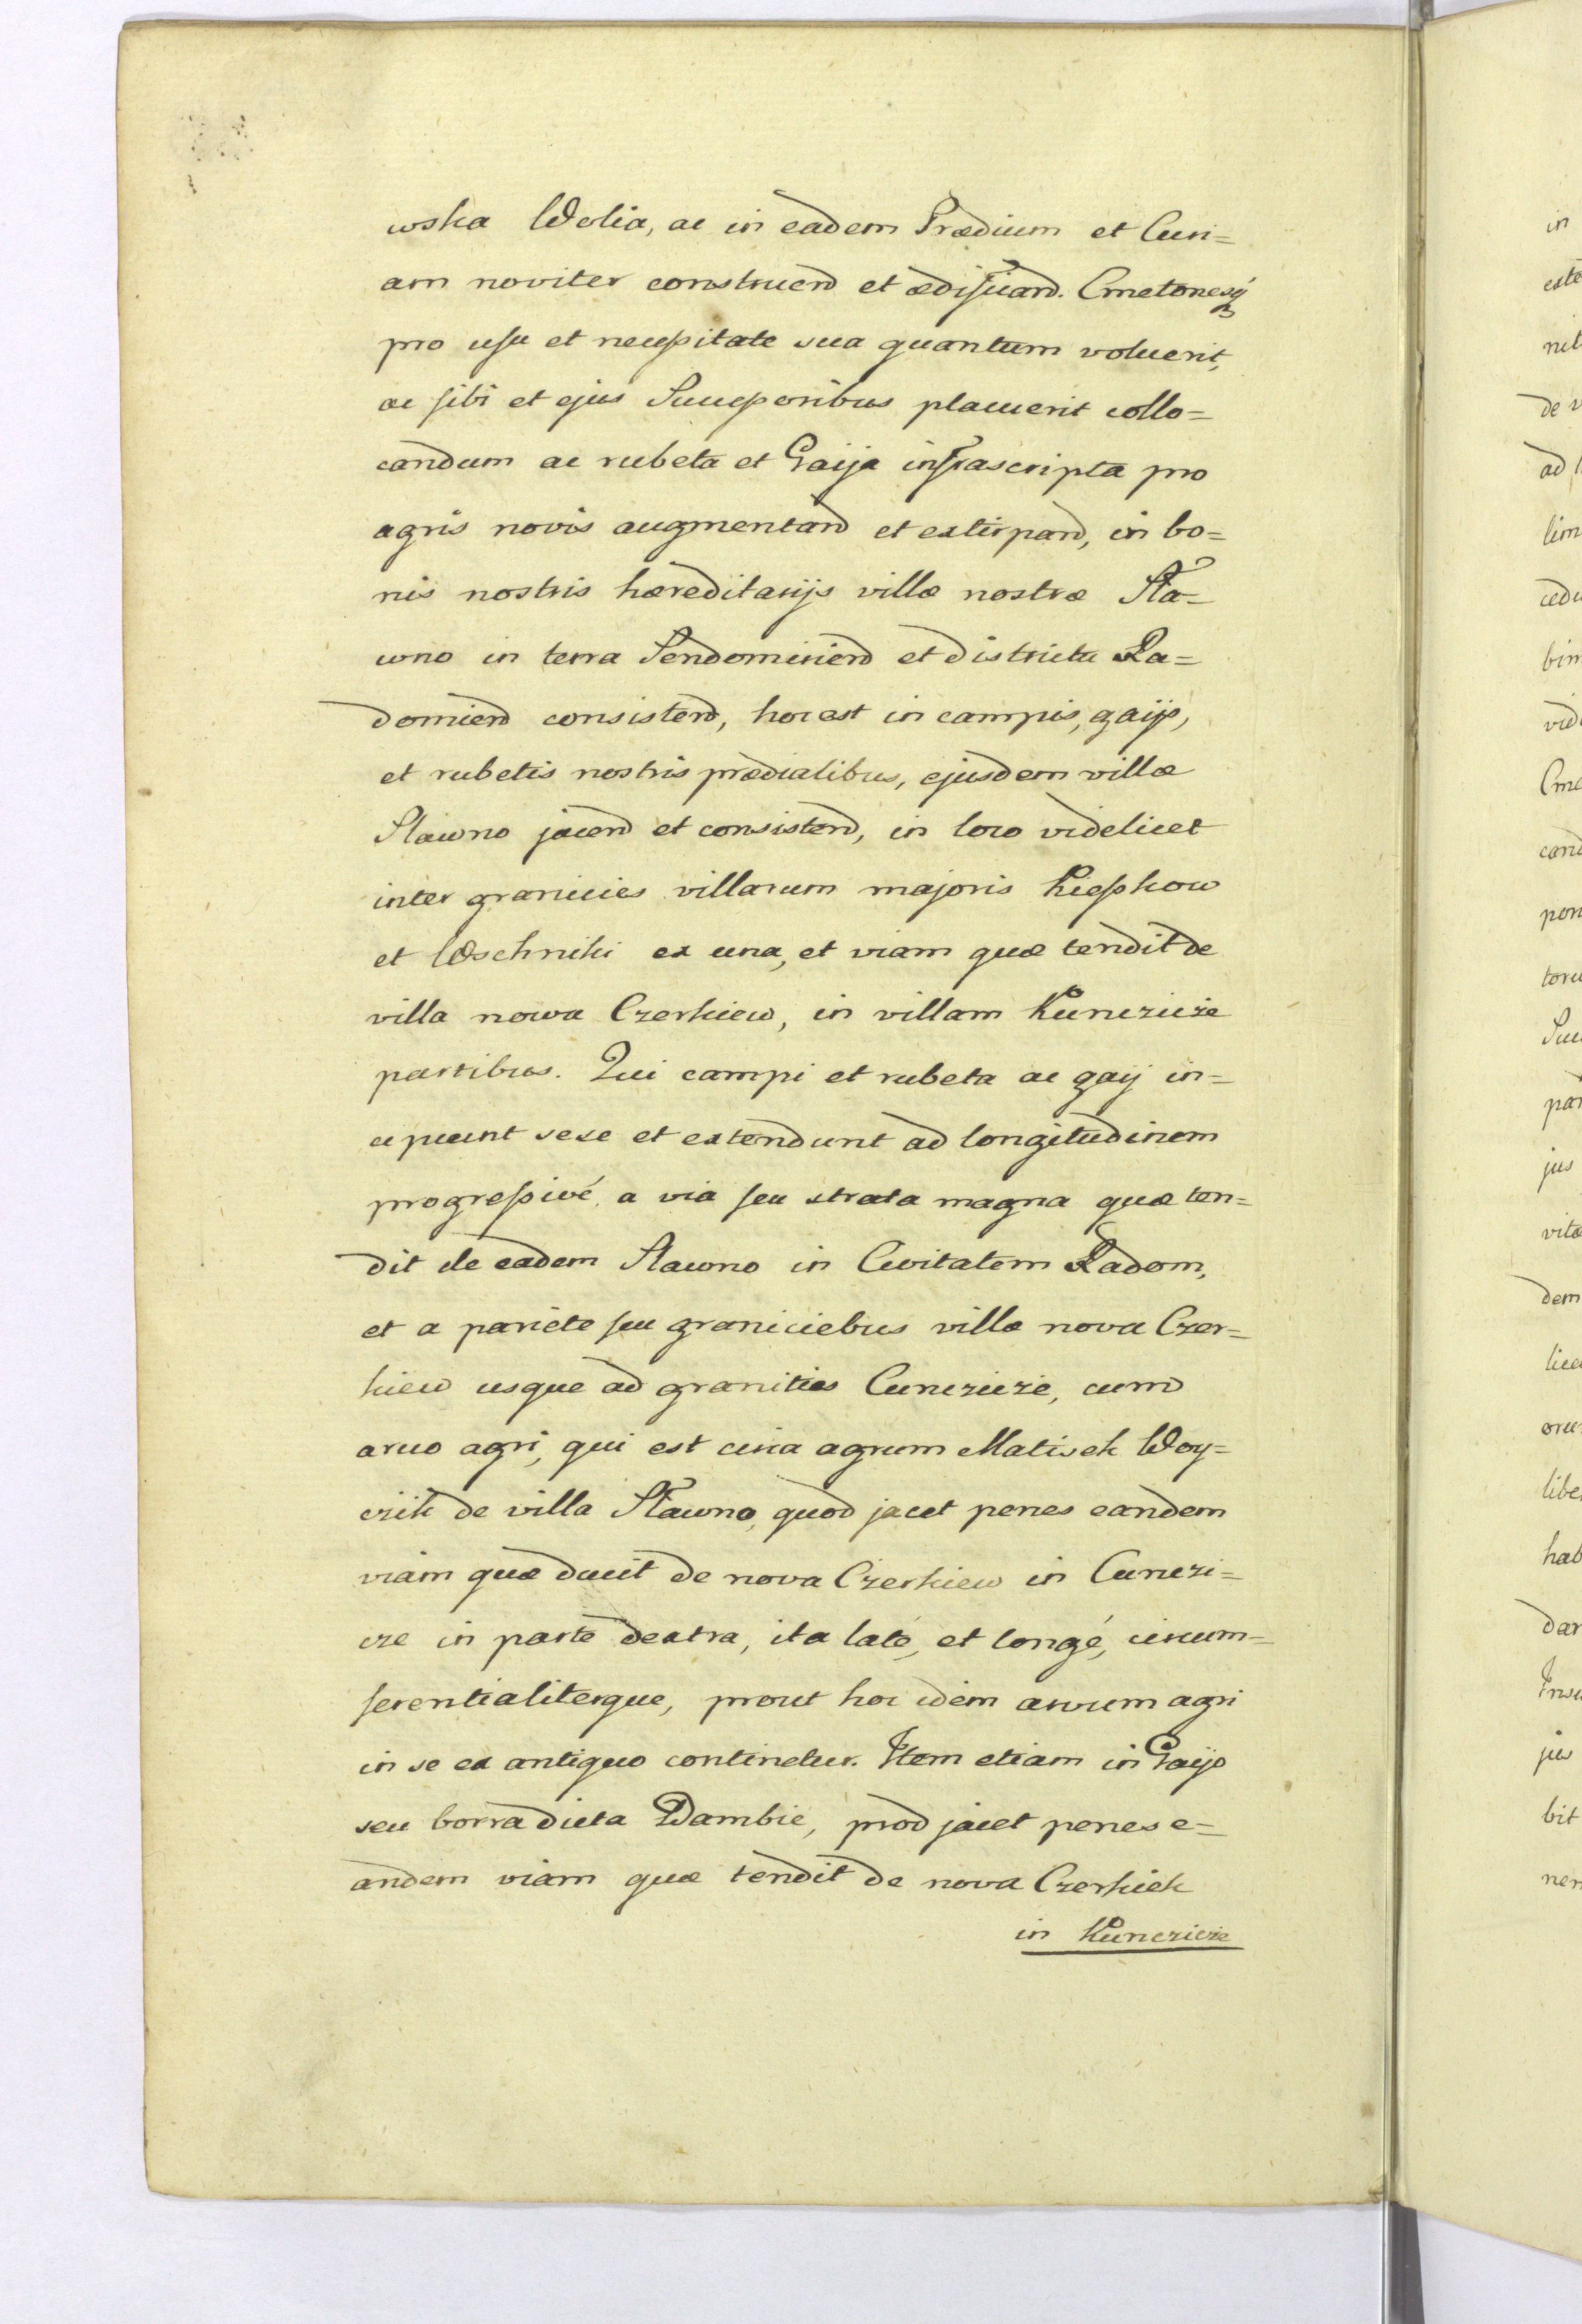 wska Wolia, ac in eadem Prædium et Curi=
am noviter construend et ædificand. Cmetonesq
pro usu et necessitate sua quantum voluerit,
ac sibi et ejus Successoribus placuerit collo=
candum ac rubeta et Gaija infrascripta pro
agris novis augmentand et extirpand, in bo=
nis nostris hæreditarijs villæ nostræ Sta=
wno in terra Sendomiriend et districtu Ra=
domiend consistend, hoc est in campis, gaijs,
et rubetis nostris prædialibus, ejusdem villæ
Slawno jacend et consistend, in loco videlicet
inter granicies villarum majoris Kiesskow
et Woschniki ex una, et viam quæ tendit de
villa nowa Czerkiew, in villam Kunczicze
partibus. Qui campi et rubeta ac gaij in=
cipiunt sese et extendunt ad longitudinem
progressivé a via seu strata magna quæ ten=
dit de eadem Slawno in Civitatem Radom,
et a pariete seu graniciebus villæ nova Czer=
kiew usque ad granities Cunczicze, cum
arvo agri, qui est circa agrum Matisek Woy=
czik de villa Stawno, quod jacet penes eandem
viam quæ ducit de nova Czerkiew in Cunczi=
cze in parte dextra, ita laté, et longé, circum=
ferentialiterque, prout hoc idem arvum agri
in se ex antiquo continetur. Item etiam in Gaijo
seu borra dicta Dambie, prod jacet penes e=
andem viam quæ tendit de nova Czerkiek
in Kunczicze
in
este
nit
de v
ad
lim
cedu
bim
vid
Cme
cand
pon
toru
Suc
par
jus
vita
dem
lice
oru
libe
hab
dar
Insu
jus
bit
ner